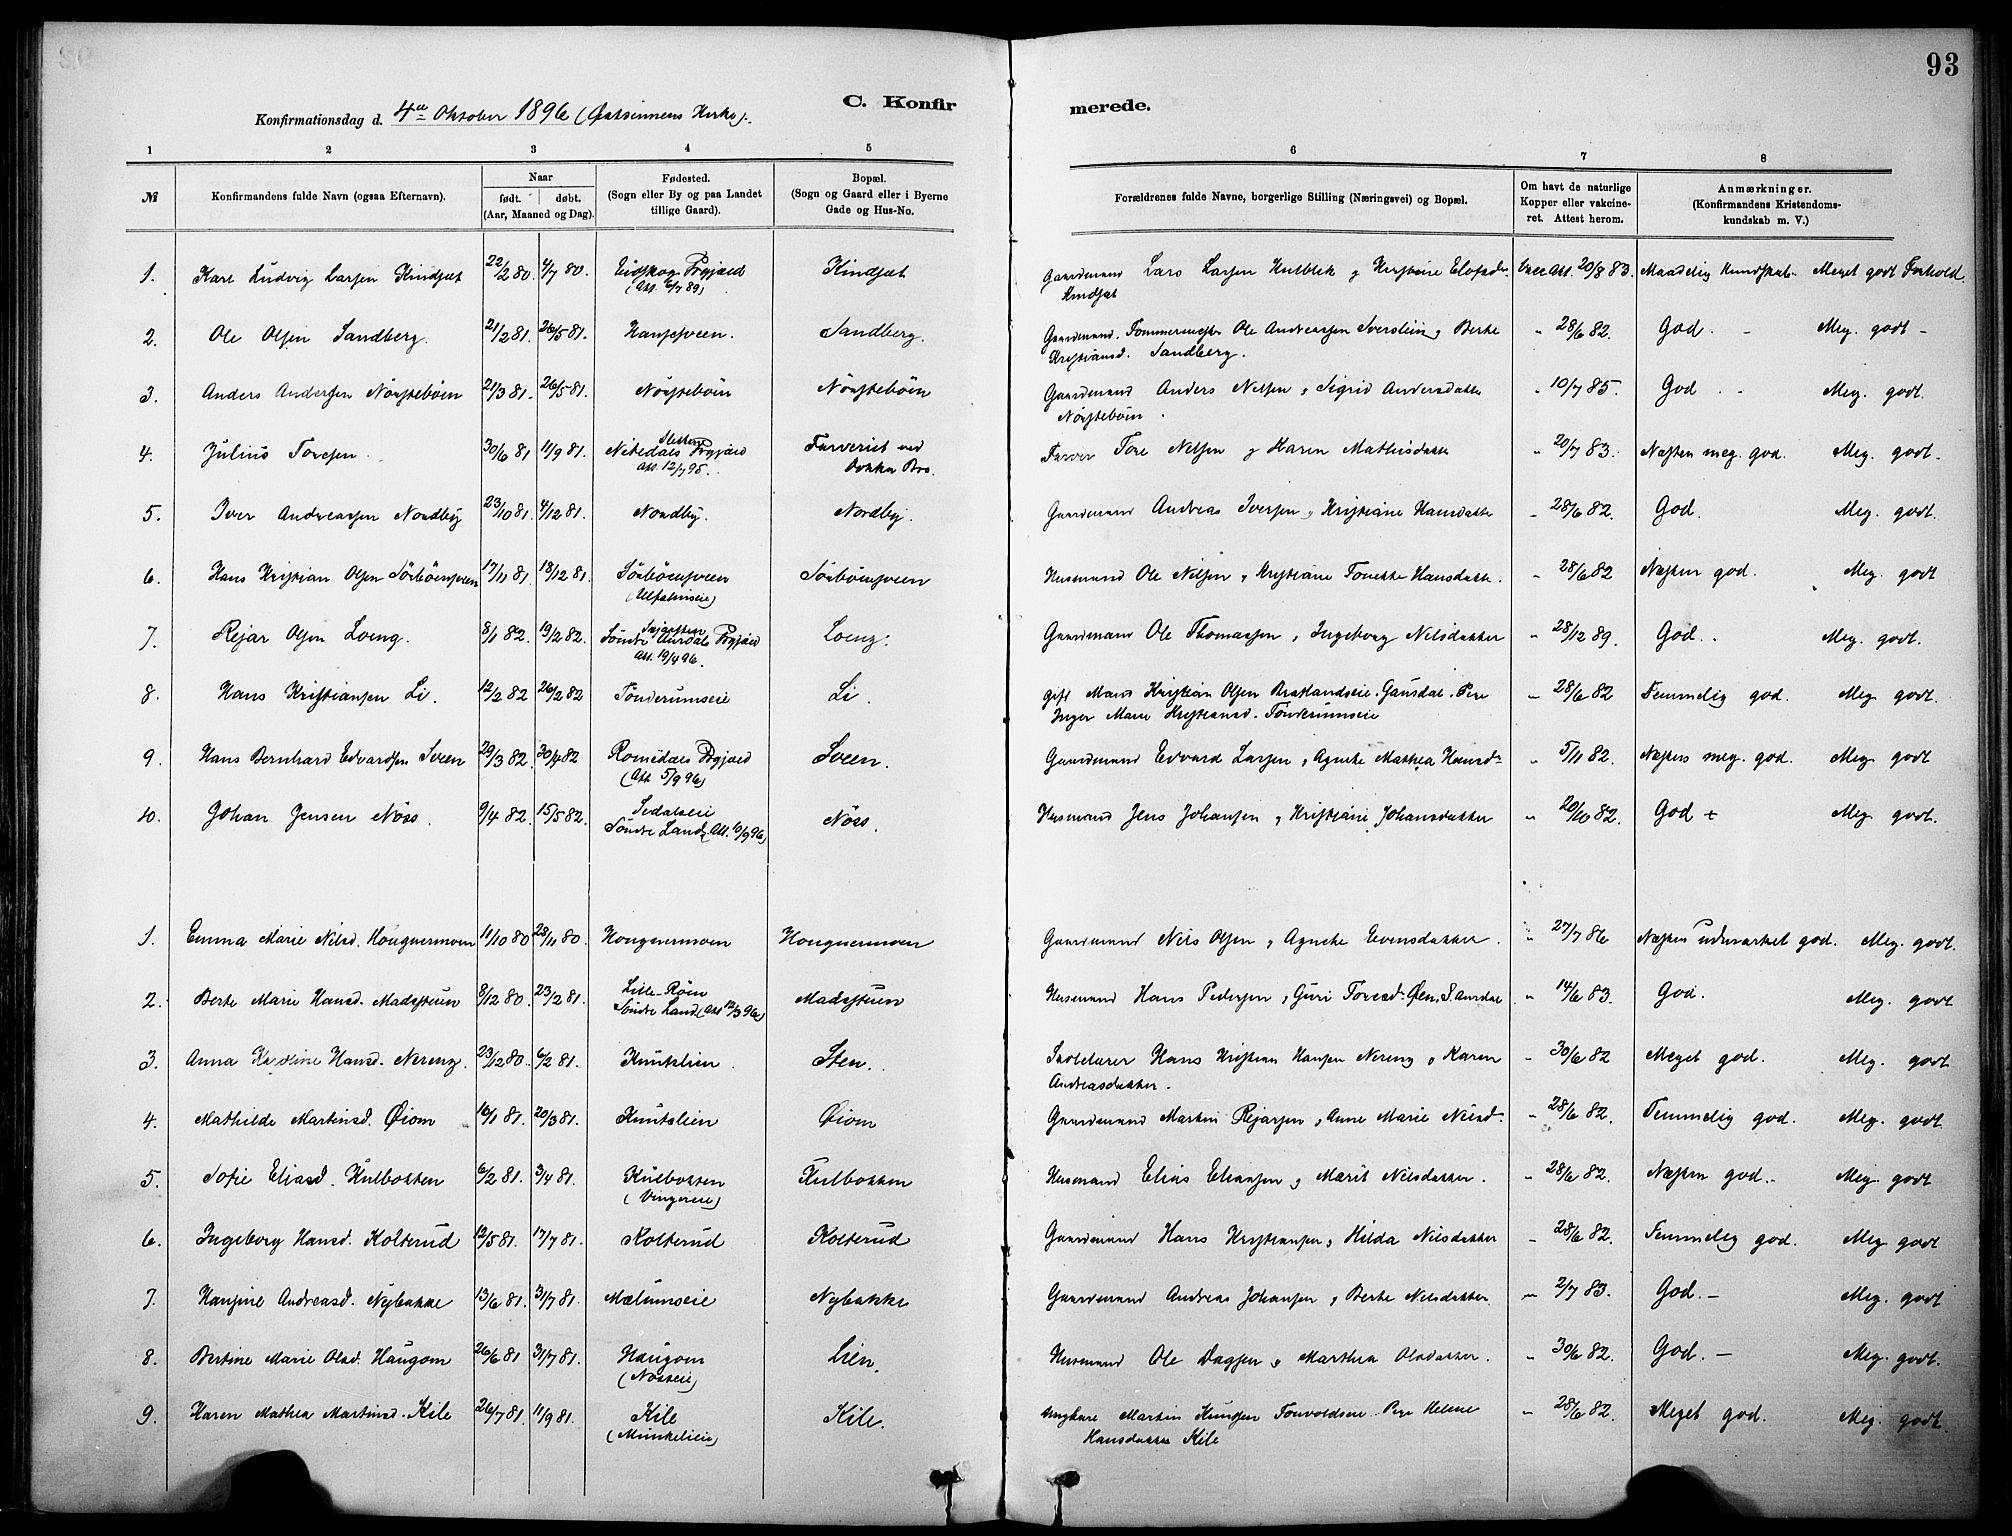 93
C. Konfirmerede.
Konfirmationsdag d. 4de Oktober 1896 (Østsinnens Kirke).
1 2 3 4 5 6 7 8
№ Konfirmandens fulde Navn (ogsaa Efternavn). Naar født. døbt. (Aar, Maaned og Dag). Fødested. (Sogn eller By og paa Landet tillige Gaard). Bopæl. (Sogn og Gaard eller i Byerne Gade og Hus-No. Forældrenes fulde Navne, borgerlige Stilling (Næringsvei) og Bopæl. Om havt de naturlige Kopper eller vakcineret. Attest herom. Anmærkninger. (Konfirmandens Kristendomskundskab m. V.)
1. Karl Ludvig Larsen Kindsæt 22/2 80. 4/7 80. Eidskog Prgjæld (Att. 6/7 89) Kindsæt Gaardmand Lars Larsen Kulblik og Kristine Elofsdr. Kindsæt Vacc. Att. 20/8 83. Maadelig Kundskab. Meget godt Forhold.
2. Ole Olsen Sandberg. 21/2 81. 26/5 81. Hanssveen. Sandberg. Gaardmand, Tømmermester Ole Andreassen Iverslein, Berte Kristiansd. Sandberg. " 28/6 82. God. - Meg. godt -
3. Anders Andersen Nørstebøin 21/3 81. 26/5 81. Nørstebøin Nørstebøin Gaardmand Anders Nilsen, Sigrid Andersdatter Nørstebøin. " 10/7 85. God - Meg. godt.
4. Julius Toresen 30/6 81 11/9 81. Nitedals Prgjæld Att. 12/7 95. Farveriet ved Dokka Bro. Farver Tore Nilsen og Karen Mathisdatter " 20/7 83. Næsten meg. god. Meg. godt.
5. Iver Andreassen Nordby 23/10 81. 4/12 81. Nordby. Nordby. Gaardmand Andreas Iversen, Kristiane Hansdatter " 28/6 82. God. Meg. godt.
6. Hans Kristian Olsen Sørbøensveen 17/11 81. 18/12 81. Sørbøensveen (Ulfalmseie) Sørbøensveen Husmand Ole Nilsen, Kristiane Tonette Hansdatter. " 28/6 82 Næsten god. Meg. godt
7. Rejar Olsen Loeng. 8/1 82. 19/2 82. Søndre Aurdals Prgjæld Att. 19/4 96. Loeng. Gaardmand Ole Thomassen, Ingeborg Nilsdatter " 28/12 89. God. Meg. godt.
8. Hans Kristiansen Li. 12/2 82 26/2 82 Tønderumseie Li. gift Mand Kristian Olsen Bratlandseie. Gausdal. Pige Inger Marie Kristiansd. Tønderumseie " 28/6 82 Temmelig god. Meg. godt.
9. Hans Bernhard Edvardsen Sveen 29/3 82. 30/4 82 Romedals Prgjæld (Att. 5/9 96) Sveen. Gaardmand Edvard Larsen, Agnete Mathea Hansdr. " 5/11 82. Næsten meg. god. Meg. godt
10. Johan Jensen Nøss. 9/4 82. 15/5 82. Sedalseie Søndre Land (Att. 10/9 96) Nøss. Husmand Jens Johansen, Kristiane Johansdatter " 20/10 82. God + Meg. godt.
1. Emma Marie Nilsd. Hougnermoen 11/10 80 28/11 80. Hougnermoen Hougnermoen Gaardmand Nils Olsen, Agnete Evensdatter. " 27/7 86 Næsten udmærket god. Meg. godt.
2. Berte Marie Hansd. Madsstuen 8/12 80. 23/2 81. Lille-Røin Søndre Land (Att. 12/3 96) Madsstuen Husmand Hans Pedersen, Guri Toresd. Øen, S. Aurdal " 14/6 83. God. Meg. godt
3. Anna Karoline Hansd. Nereng. 23/12 80. 6/2 81. Knutslien Sten. Skolelærer Hans Kristian Hansen Nereng og Karen Andreasdatter. " 30/6 82 Meget god. Meg. godt
4. Mathilde Martinsd. Øiom 16/1 81. 20/3 81. Knutslien Øiom Gaardmand Martin Rejarsen, Anne Marie Nilsd. " 28/6 82. Temmelig god. Meg. godt.
5. Sofie Eliasd. Kulbokken 6/2 81. 3/4 81. Kulbokken (Vingereie) Kulbokken Husmand Elias Eliassen og Marit Nilsdatter. " 28/6 82. Næsten god. Meg. godt
6. Ingeborg Hansd. Kolterud 12/5 81. 17/7 81. Kolterud Kolterud Gaardmand Hans Kristiansen, Hilda Nilsdatter " 28/6 82. Temmelig god. Meg. godt
7. Hansine Andreasd. Nybakke 13/6 81. 31/7 81. Mælumseie Nybakke Gaardmand Andreas Johansen, Berte Nilsdatter " 2/7 83. God. - Meg. godt
8. Bertine Marie Olsd. Haugom 26/6 81 31/7 81. Haugom (Nøsseie) Lien. Husmand Ole Dagsen, Marthea Olsdatter. " 30/6 82. God. - Meg. godt.
9. Karen Mathea Martinsd. Kile 26/7 81. 11/9 81. Kile (Munkelieie) Kile. Ungkarl Martin Knudsen Tonvoldseie. Pige Helene Hansdatter Kile " 28/6 82. Meget god. Meg. godt.